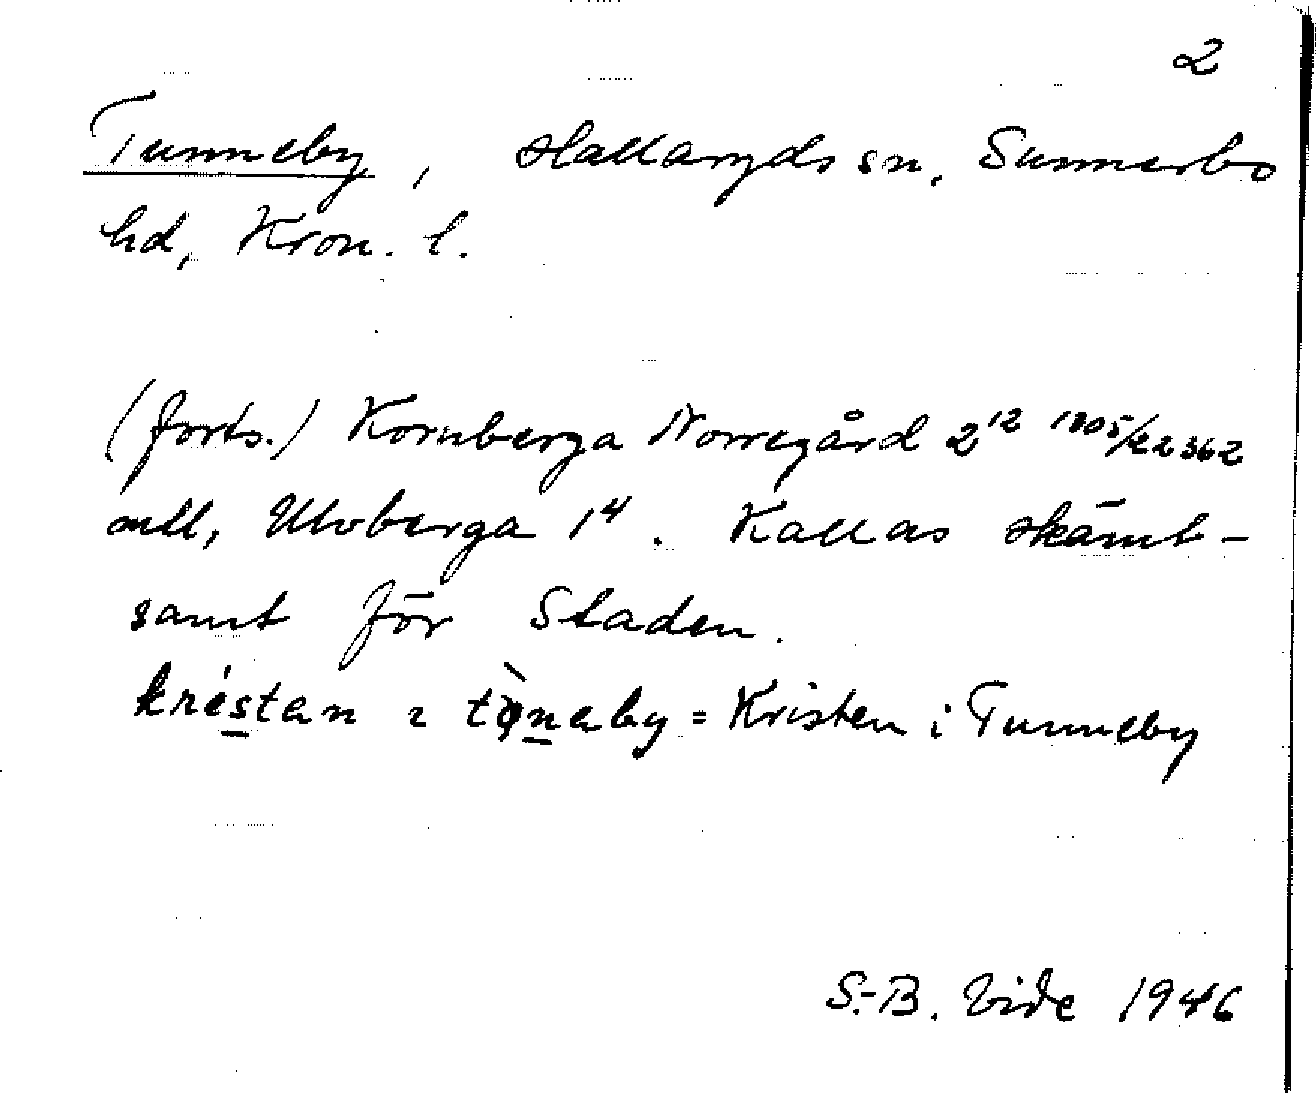 2
Tunneby, Hallaryds sn, Sunnerbo
hd, Kron. l.
(forts.) Kornberga Norregård 2¹² 1805/22362
mtl, Ulvberga 1⁴. Kallas skämt-
samt för Staden.
= Kristen i Tunneby
S.-B. Vide 1946